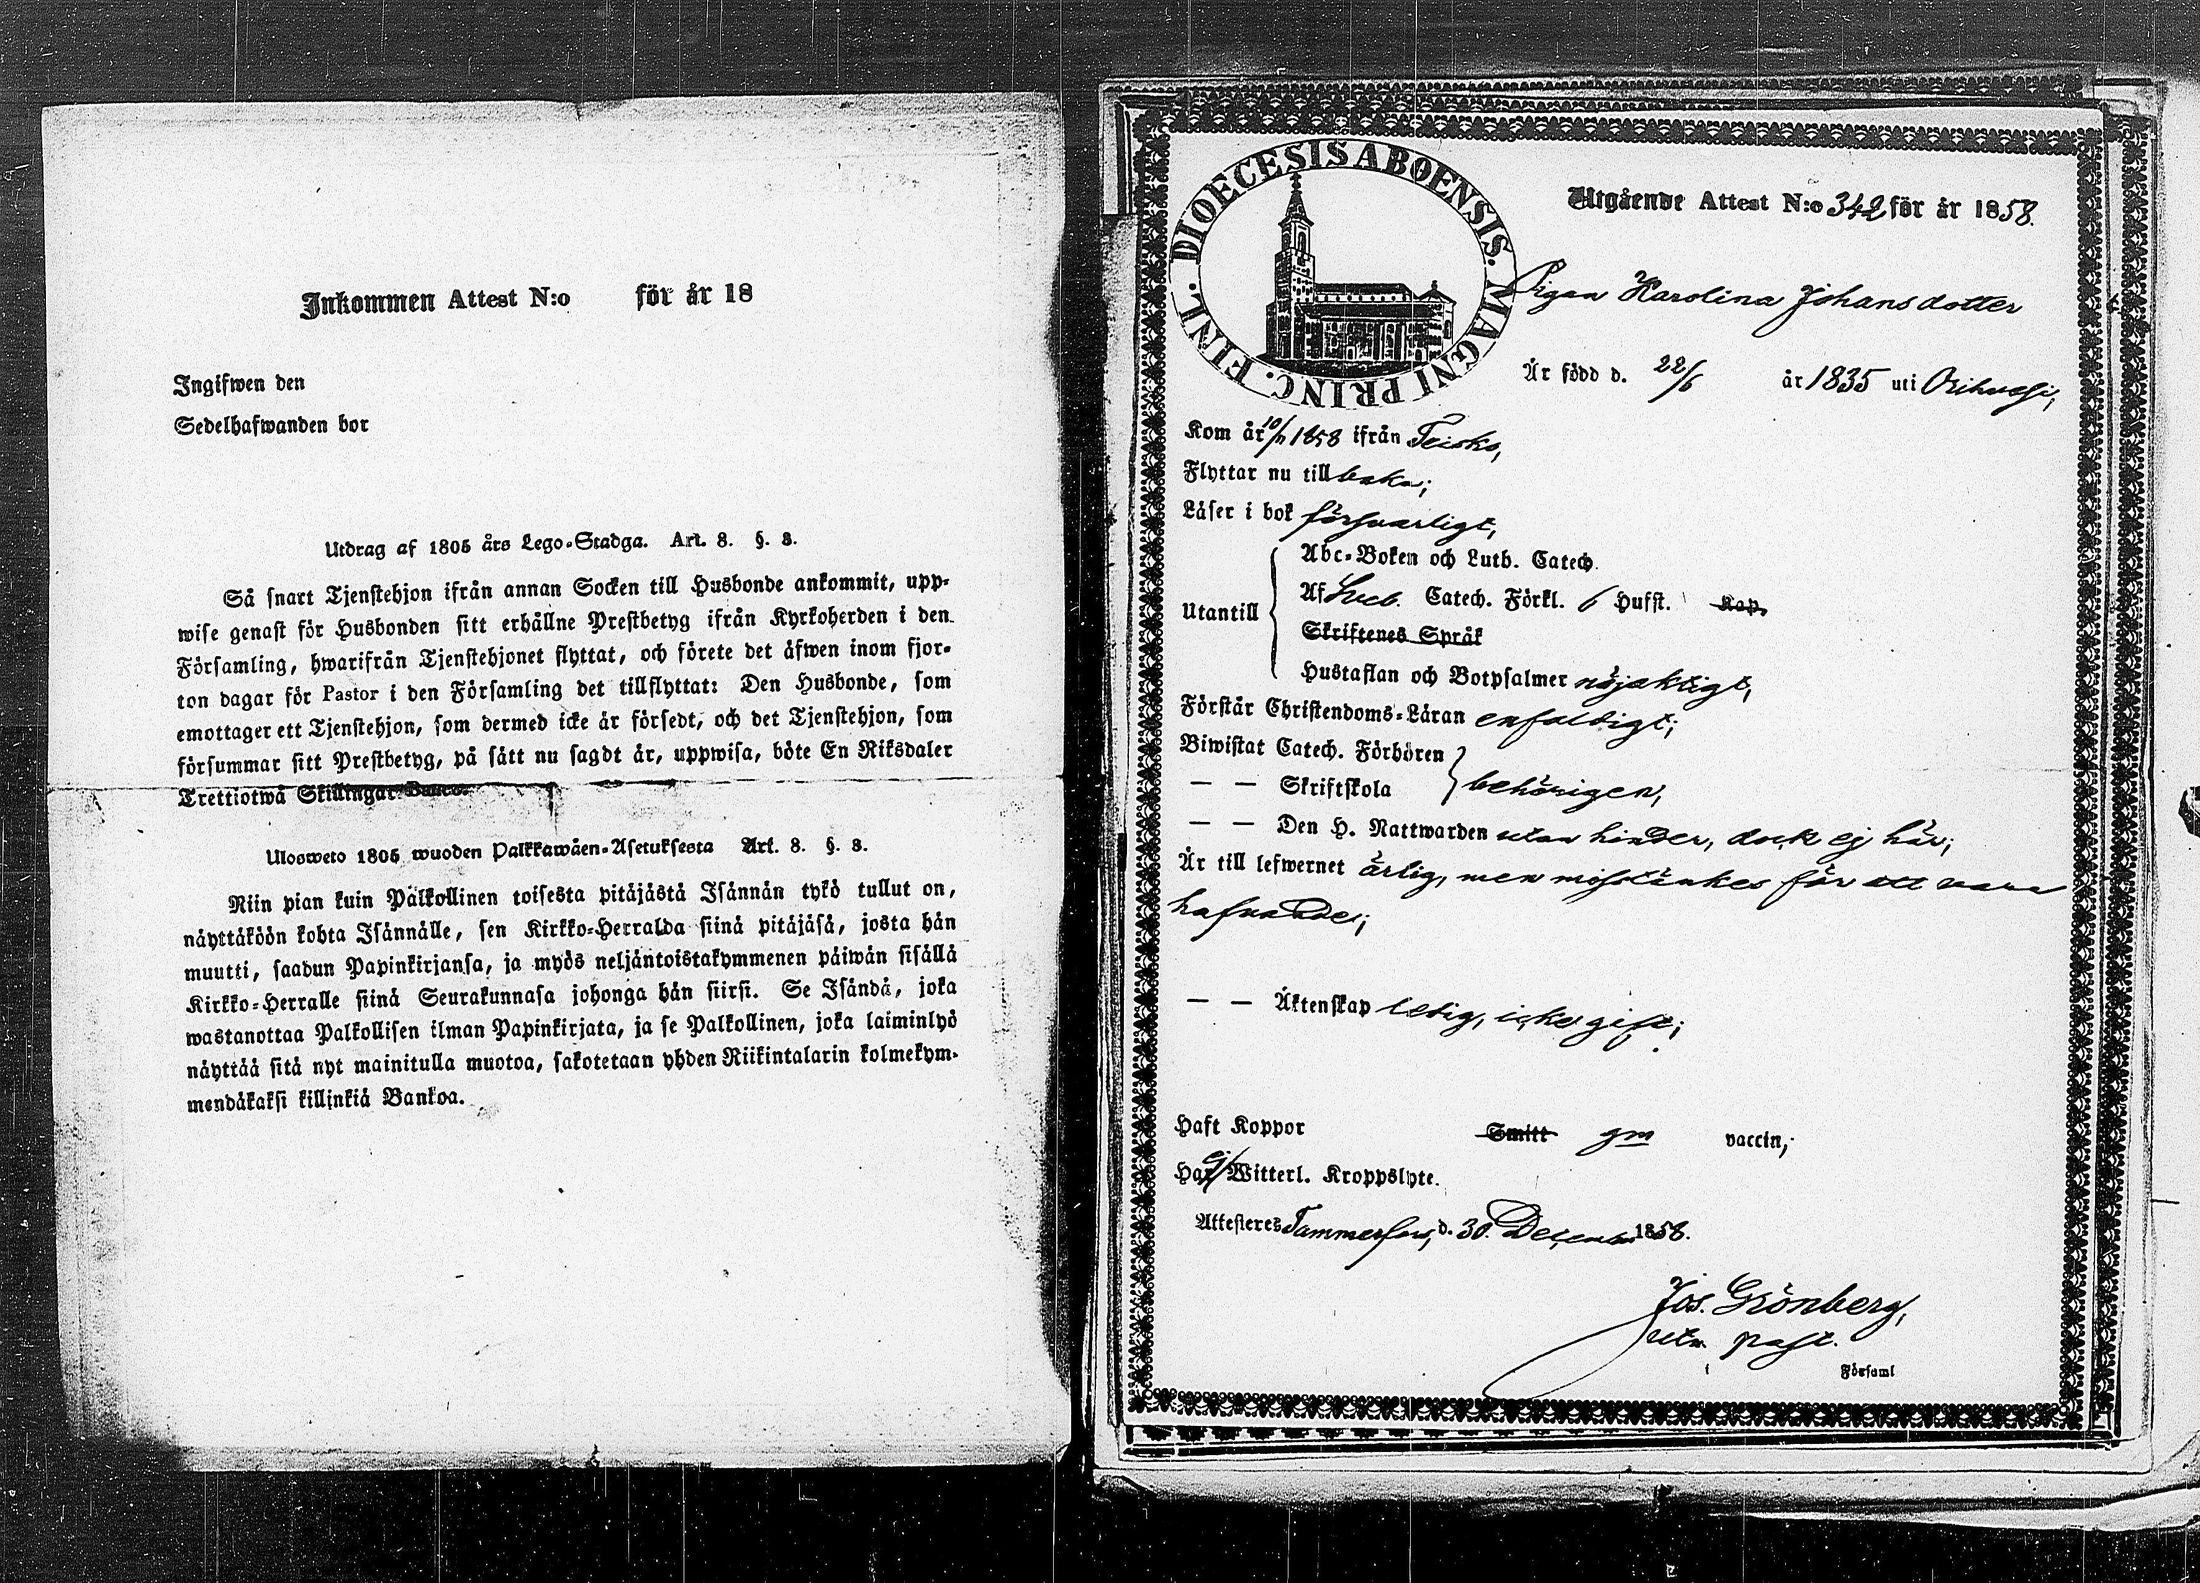 Inkommen Attest N:o för år 18
Ingifwen den
Sedelhafwanden bor
Utdrag af 1805 års Lego-Stadga. Art. 8. §. 3.
Så snart Tjenstehjon ifrån annan Socken till Husbonde ankommit, upp-
wise genast för Husbonden sitt erhållne Prestbetyg ifrån Kyrkoherden i den
Församling, hwarifrån Tjenstehjonet flyttat, och förete det äfwen inom fjor-
ton dagar för Pastor i den Församling det tillflyttat: Den Husbonde, som
emottager ett Tjenstehjon, som dermed icke är försedt, och det Tjenstehjon, som
försummar sitt Prestbetyg, på sätt nu sagdt är, uppwisa, böte En Riksdaler
Trettiotwå Skillingar Banco.
Ulosweto 1805 wuoden Palkkawäen-Asetuksesta Art. 8. §. 3.
Niin pian kuin Palkollinen toisesta pitäjästä Isännän tykö tullut on,
näyttäköön kohta Isännälle, sen Kirkko-Herralda siinä pitäjäsä, josta hän
muutti, saadun Papinkirjansa, ja myös neljäntoistakymmenen päiwän sisällä
Kirkko-Herralle siinä Seurakunnasa johonga hän siirsi. Se Isändä, joka
wastanottaa Palkollisen ilman Papinkirjata, ja se Palkollinen, joka laiminlyö
näyttää sitä nyt mainitulla muotoa, sakotetaan yhden Riikintalarin kolmekym-
mendäkaksi killinkiä Bankoa.
DIOECESIS ABOENSIS. MAGNI PRINC. FINL.
Utgående Attest N:o 342 för år 1858.
Pigan Karolina Johansdotter
Är född d. 22/6 år 1835 uti Orihvesi,
Kom år 10/11 1858 ifrån Teisko,
Flyttar nu tillbaka;
Läser i bok försvarligt,
Utantill
Abc-Boken och Luth. Catech.
Af Sveb. Catech. Förkl. 6 Hufst. Kap.
Skriftenes Språk
Hustaflan och Botpsalmer nöjaktigt,
Förstår Christendoms-Läran enfaldigt;
Biwistat Catech. Förhören
— — Skriftskola behörigen,
— — Den H. Nattwarden utan hinder, dock ej här;
Är till lefwernet ärlig, men misstänkes för att vara
hafvande;
— — Äktenskap ledig, icke gift;
Haft Koppor Smitt gm vaccin;
Har ej Witterl. Kroppslyte.
Attesteres Tammerfors, d. 30 December 1858.
Jos. Grönberg,
past.
i Församl